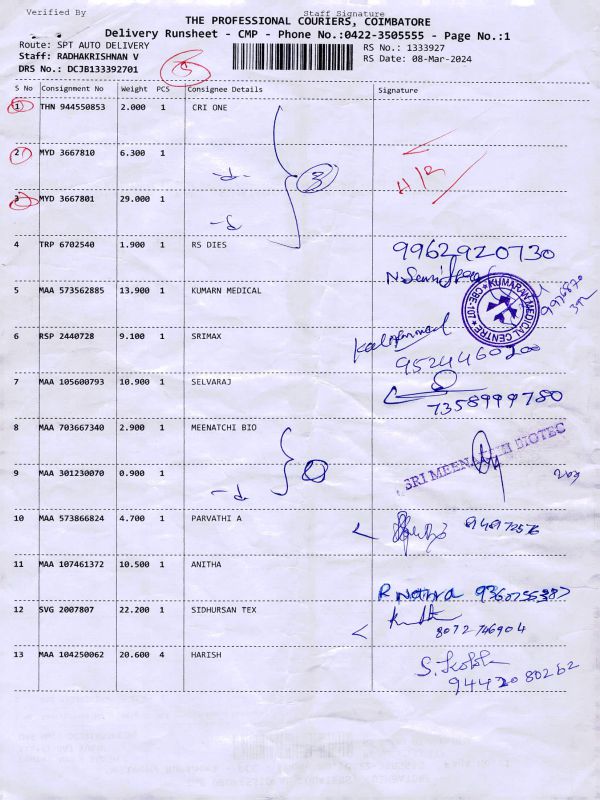 Verified By Staff Signature
THE PROFESSIONAL COURIERS, COIMBATORE
Delivery Runsheet - CMP - Phone No.:0422-3505555 - Page No.:1
Route: SPT AUTO DELIVERY RS No.: 1333927
Staff: RADHAKRISHNAN V RS Date: 08-Mar-2024
DRS No.: DCJB133392701 5
S No Consignment No Weight PCS Consignee Details Signature
1 THN 944550853 2.000 1 CRI ONE
2 MYD 3667810 6.300 1 3 H/R
3 MYD 3667801 29.000 1
4 TRP 6702540 1.900 1 RS DIES 9962920730
5 MAA 573562885 13.900 1 KUMARN MEDICAL KUMARAN MEDICAL CENTRE CBE-107
6 RSP 2440728 9.100 1 SRIMAX
9524460200
7 MAA 105600793 10.900 1 SELVARAJ 7358999780
8 MAA 703667340 2.900 1 MEENATCHI BIO SRI MEENATCHI BIOTEC
9 MAA 301230070 0.900 1
10 MAA 573866824 4.700 1 PARVATHI A
11 MAA 107461372 10.500 1 ANITHA
12 SVG 2007807 22.200 1 SIDHURSAN TEX 8072746904
13 MAA 104250062 20.600 4 HARISH
9442080262